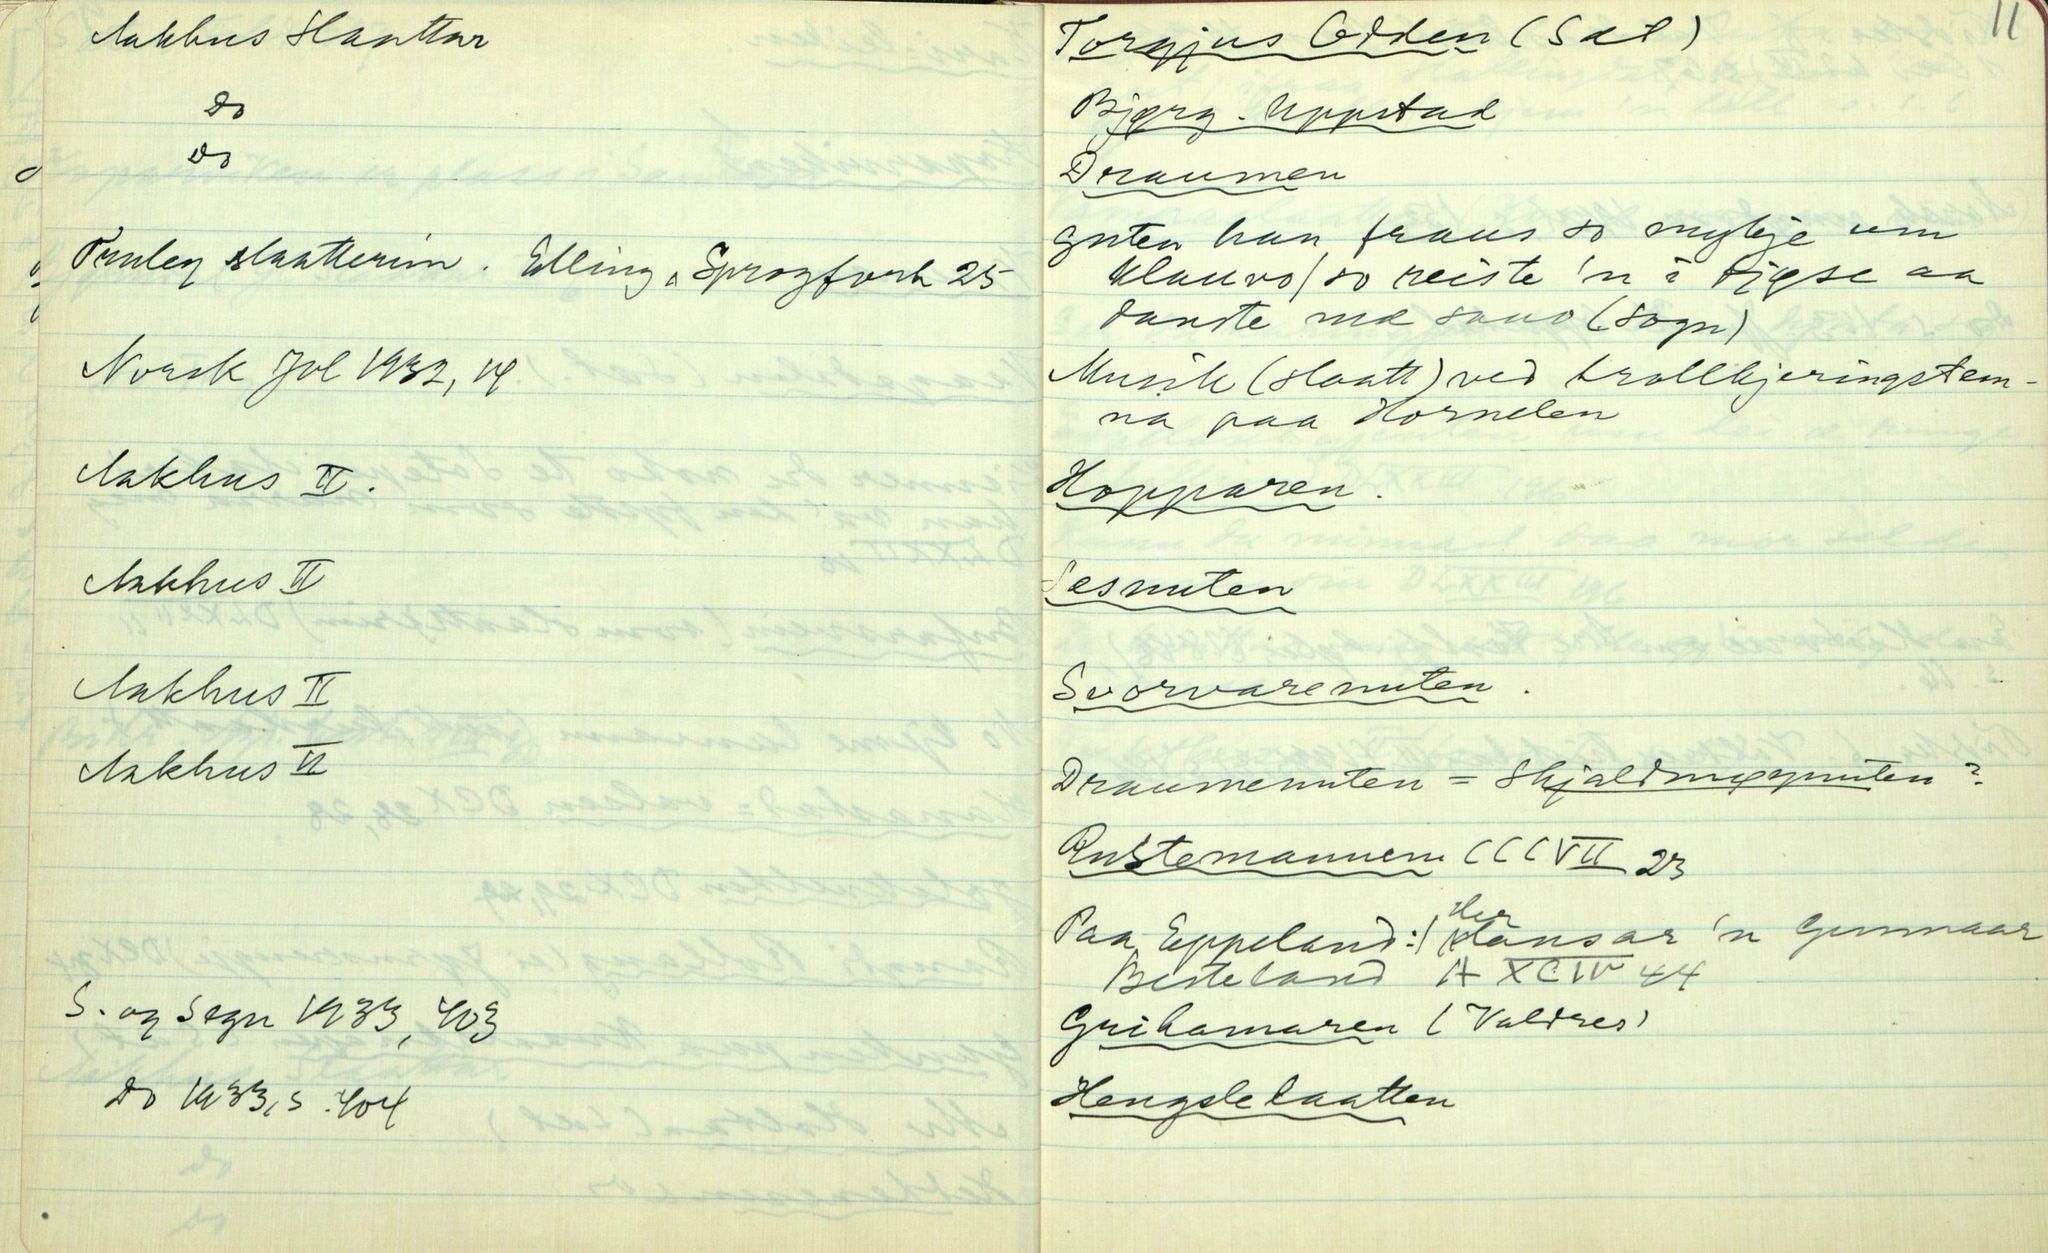 Aakhus Slaattar
Do
Do
Truleg slaatterim. Elling, Sprogfork 25
Norsk Jol 1932, 14
Aakhus II.
Aakhus II
Aakhus II
Aakhus II
S. og Segn 1933, 403
Do 1933, s. 404
11
Torgjus Odden (Sæt)
Bjørg. Uppstad
Draumen
Guten han fraus so mykje um
klauvo / so reiste 'n i fjøse aa
danste mæ sauo (Sogn)
Musik (slaatt) ved trollkjeringstem-
na paa Hornelen
Hopparen.
Lesnuten
Svorvarenuten.
Draumenuten = Skjaldmøynuten?
Rustemannen CCCVII 23
Paa Eppeland: / Her
dansar 'n Gunnaar
Besteland A XCIV 44
Grihamaren (Valdres)
Hengsleslaatten